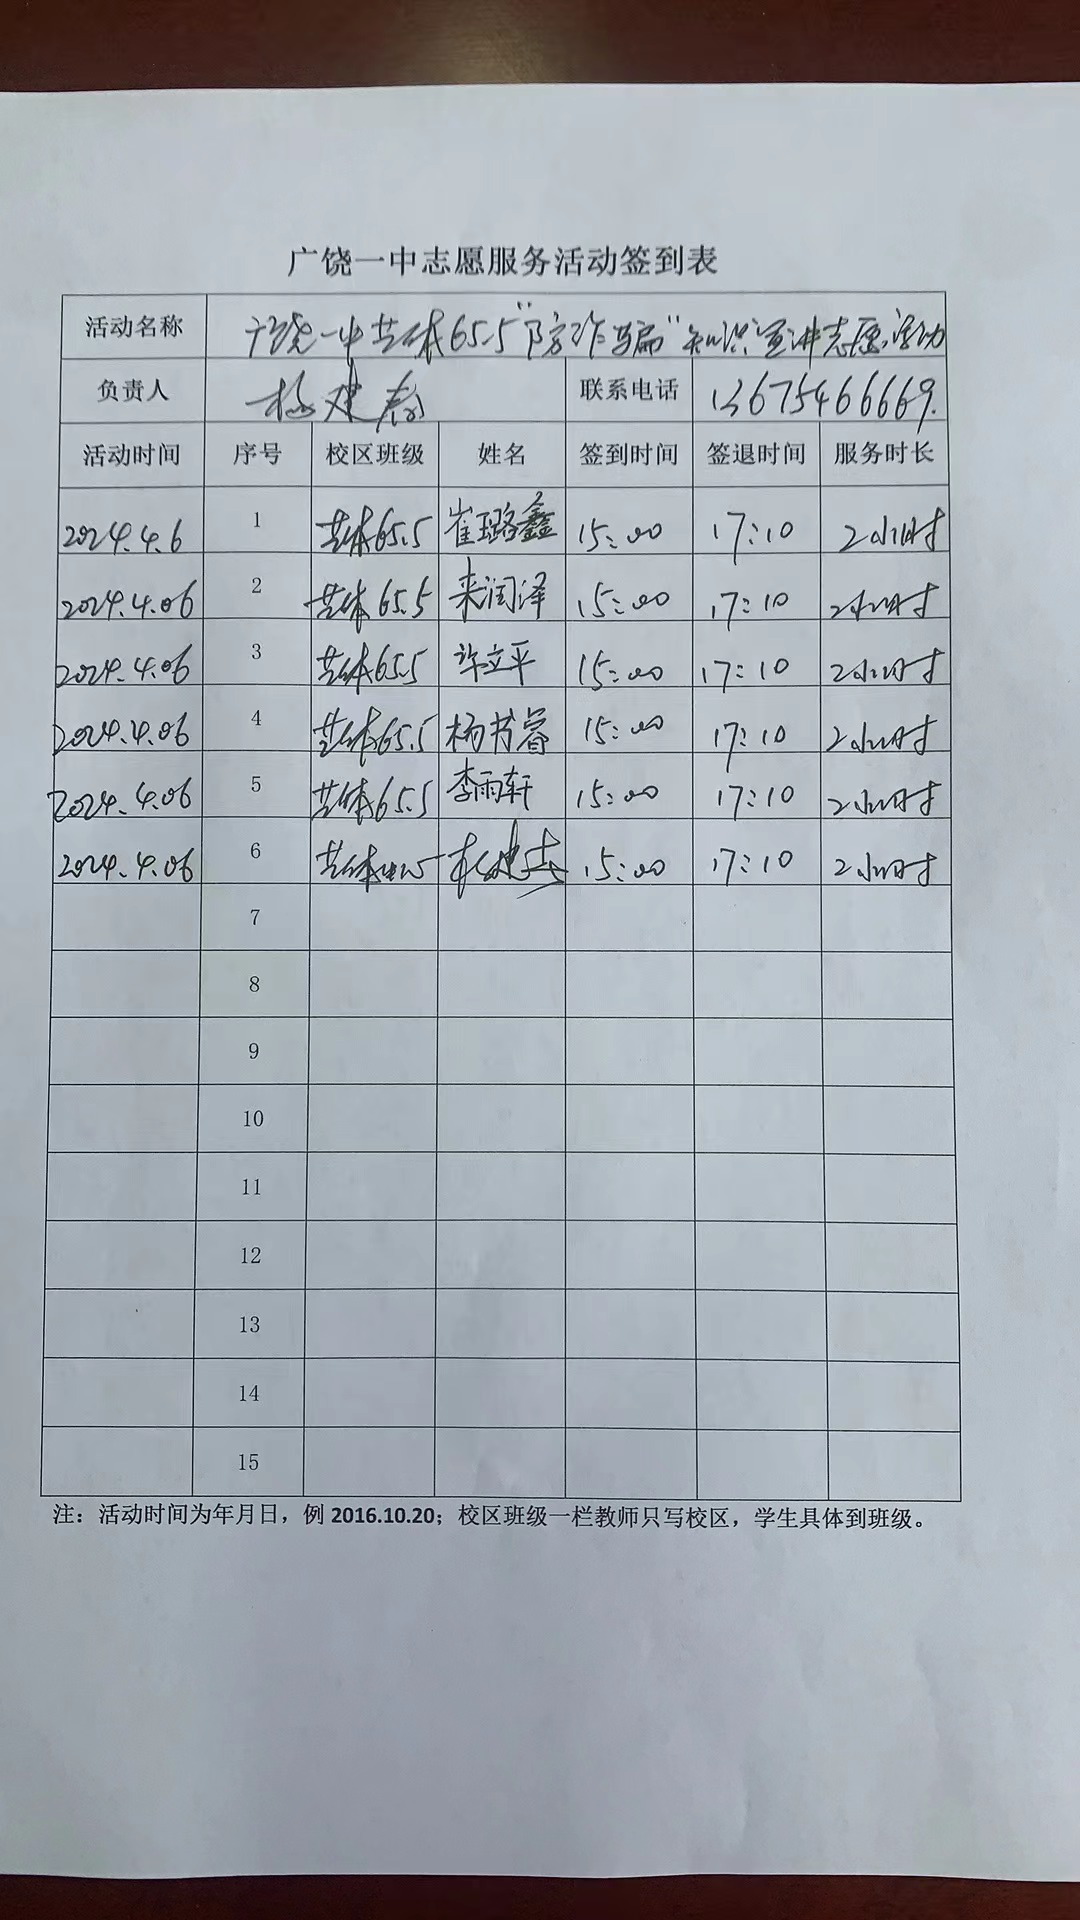 广饶一中志愿服务活动签到表
活动名称 广饶一中艺体65.5"防诈骗"知识宣讲志愿活动
负责人 杨建 联系电话 13675466669.
活动时间 序号 校区班级 姓名 签到时间 签退时间 服务时长
2024.4.6 1 艺体65.5 崔璐鑫 15:00 17:10 2小时
2024.4.06 2 艺体65.5 来润泽 15:00 17:10 2小时
2024.4.06 3 艺体65.5 许立平 15:00 17:10 2小时
2024.4.06 4 艺体65.5 杨书睿 15:00 17:10 2小时
2024.4.06 5 艺体65.5 李雨轩 15:00 17:10 2小时
2024.4.06 6 艺体中心 15:00 17:10 2小时
7
8
9
10
11
12
13
14
15
注：活动时间为年月日，例 2016.10.20；校区班级一栏教师只写校区，学生具体到班级。